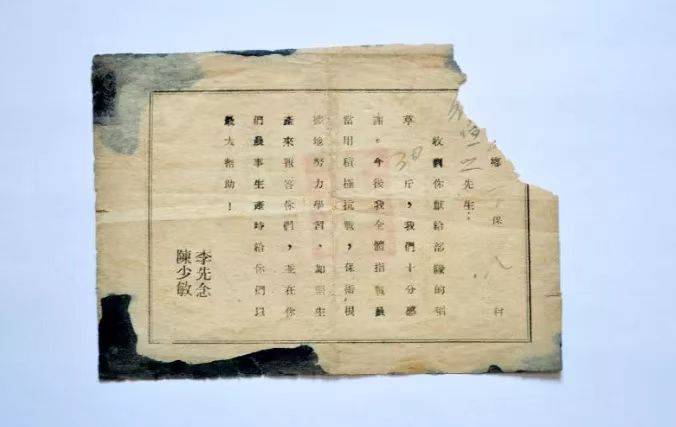 鄉 保 八 村
先生：
收到你獻給部隊的稻
草 30 斤，我們十分感
謝。今後我全體指戰員
當用積極抗戰，保衛根
據地努力學習，加緊生
產來報答你們，並在你
們農事生產時給你們以
最大幫助！
李先念
陳少敏